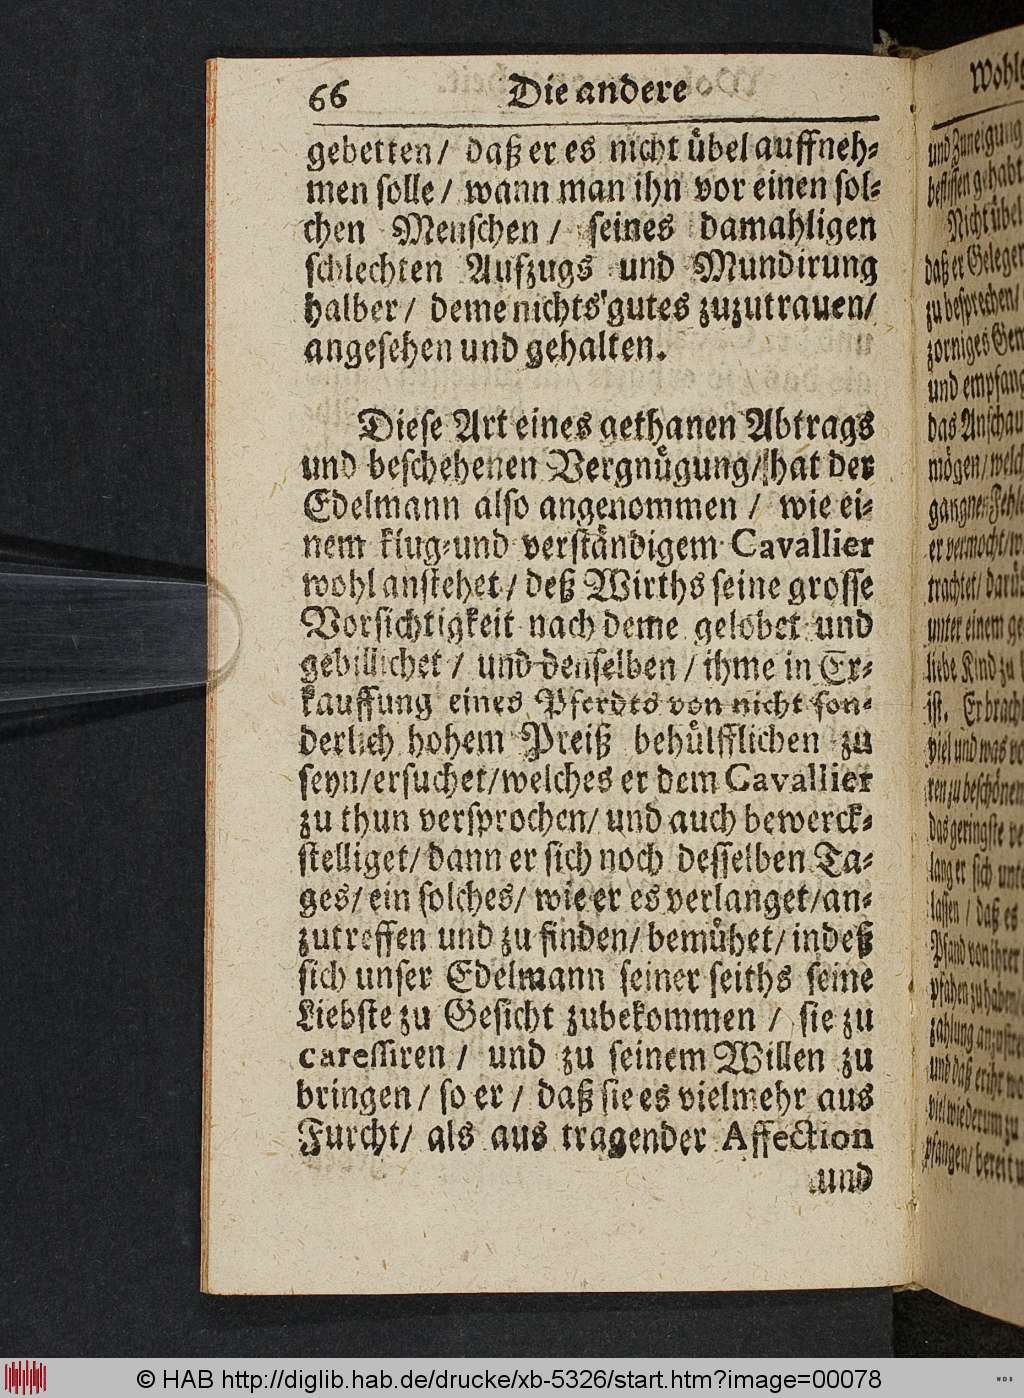 66 Die andere
gebetten/ daß er es nicht übel auffneh-
men solle/ wann man ihn vor einen sol-
chen Menschen/ seines damahligen
schlechten Aufzugs und Mundirung
halber/ deme nichts gutes zuzutrauen/
angesehen und gehalten.
Diese Art eines gethanen Abtrags
und beschehenen Vergnügung/ hat der
Edelmann also angenommen/ wie ei-
nem klug-und verständigem Cavallier
wohl anstehet/ deß Wirths seine grosse
Vorsichtigkeit nach deme gelobet und
gebillichet/ und denselben/ ihme in Er-
kauffung eines Pferdts von nicht son-
derlich hohem Preiß behülfflichen zu
seyn/ ersuchet/ welches er dem Cavallier
zu thun versprochen/ und auch bewerck-
stelliget/ dann er sich noch desselben Ta-
ges/ ein solches/ wie er es verlanget/ an-
zutreffen und zu finden/ bemühet/ indeß
sich unser Edelmann seiner seiths seine
Liebste zu Gesicht zubekommen/ sie zu
caressiren/ und zu seinem Willen zu
bringen/ so er/ daß sie es vielmehr aus
Furcht/ als aus tragender Affection
und
Wohl
und Zuneigung
beflissen gehabt
Nicht übel
daß er Gelegen
zu besprechen/
zorniges Gem
und empfang
das Anschau
mögen/ welch
gangnen Fehle
er vermocht/ w
trachtet/ darü
unter einem ge
liebe Kind zu
ist. Er bracht
viel und was vo
ren zu beschönen
das geringste ve
lang er sich unte
lassen/ daß es
Pfand von ihrer
pfahen zu haben
zahlung anzustre
und daß er ihr wo
viel wiederum zu
pfangen/ bereit u
© HAB http://diglib.hab.de/drucke/xb-5326/start.htm?image=00078